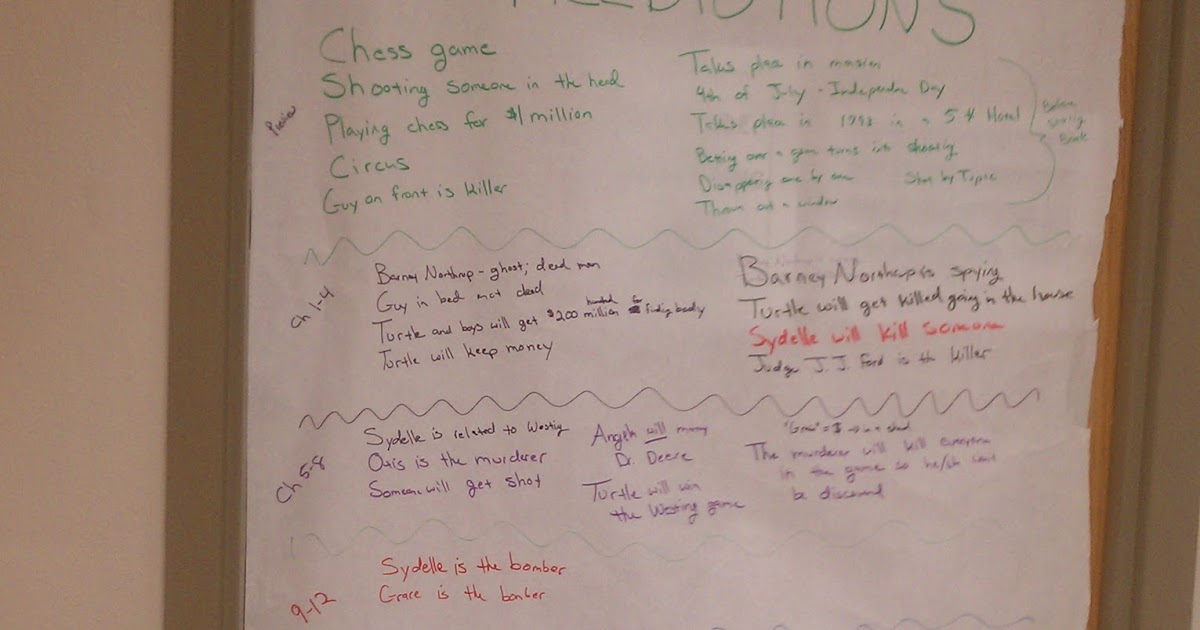 PREDICTIONS
Preview
Chess game
Shooting someone in the head
Playing chess for $1 million
Circus
Guy on front is killer
Takes place in mansion
4th of July - Independence Day
Takes place in in a 5 Hotel
Betting over a game turns into shooting
Disappearing one by one
Thrown out a window
Before Starting Book
Ch 1-4
Barney Northrup - ghost; dead man
Guy in bed not dead
Turtle and boys will get $200 hundred million for finding body
Turtle will keep money
Barney Northrup is spying
Turtle will get killed going in the house
Sydelle will kill someone
Judge J.J. Ford is the killer
Ch 5-8
Sydelle is related to Westing
Otis is the murderer
Someone will get shot
Angela will marry
Dr. Deere
Turtle will win
the Westing game
The murderer will kill everyone
in the game so he/she
be discovered
9-12
Sydelle is the bomber
Grace is the bomber